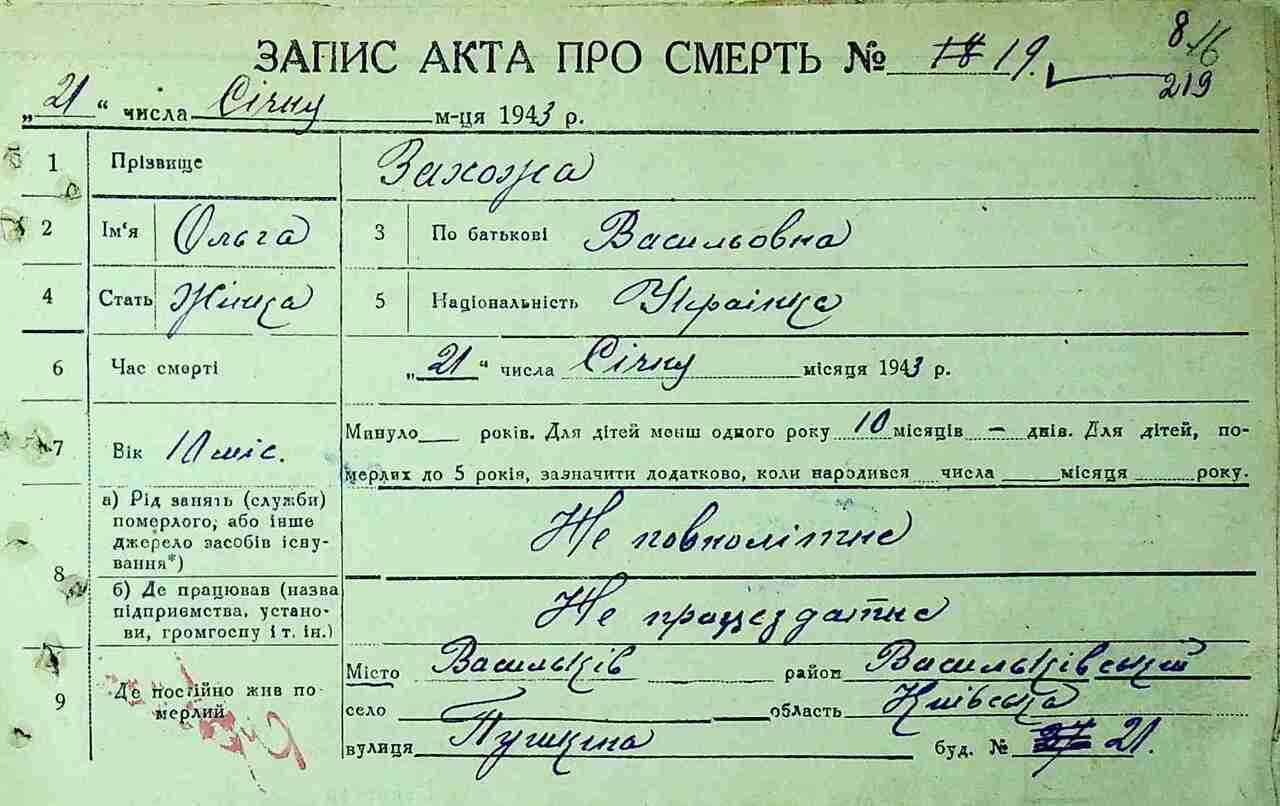 8/16
ЗАПИС АКТА ПРО СМЕРТЬ № 19.
219
„21“ числа Січну м-ця 1943 р.
1 Прізвище Захожа
2 Ім'я Ольга 3 По батькові Васильовна
4 Стать Жінка 5 Національність Українка
6 Час смерті „21“ числа Січну місяця 1943 р.
7 Вік 10 міс. Минуло___ років. Для дітей менш одного року 10 місяців – днів. Для дітей, по-
мерлих до 5 років, зазначити додатково, коли народився числа ___ місяця ___ року.
8 а) Рід занять (служби)
померлого, або інше
джерело засобів існу-
вання*) Не повнолітне
б) Де працював (назва
підприємства, устано-
ви, громгоспу і т. ін.) Не працездатне
9 Де постійно жив по-
мерлий
Місто Васильків район Васильківський
село область Київська
вулиця Пушкіна буд. № 21.